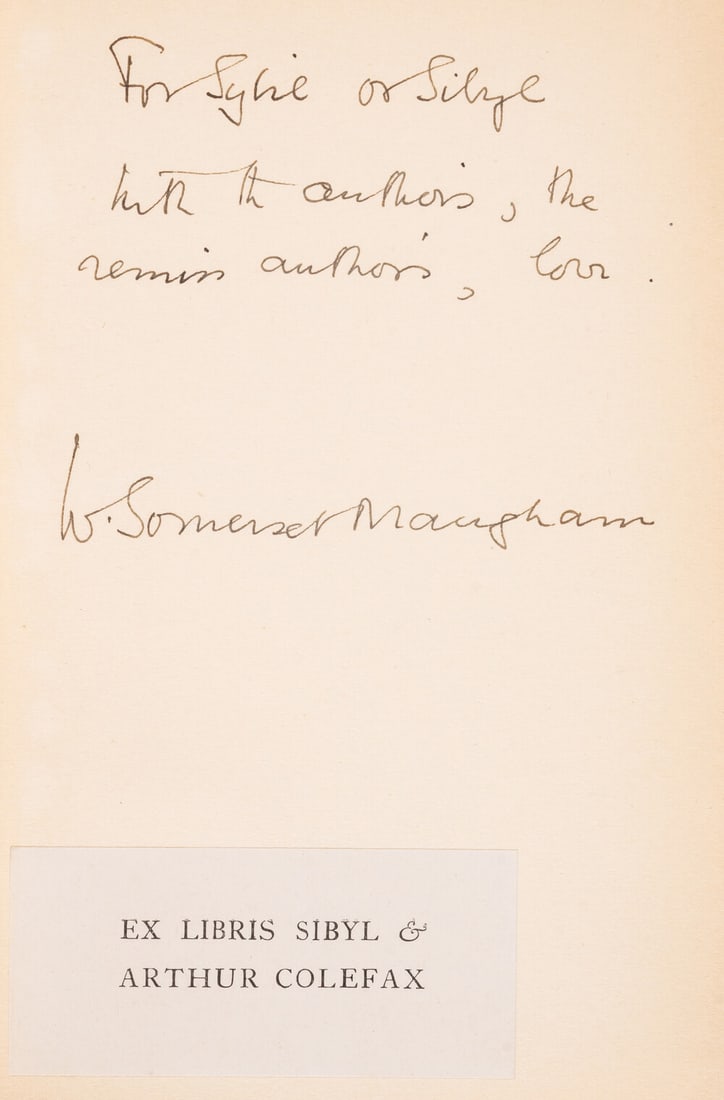 For Sybil or Sibyl
with the author's, the
remiss author's, love.
W. Somerset Maugham
EX LIBRIS SIBYL &
ARTHUR COLEFAX